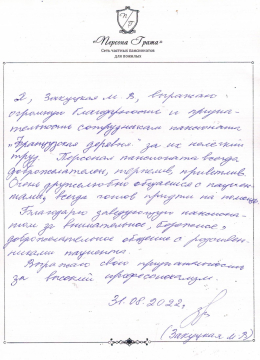 «Персона Грата»
Сеть частных пансионатов
для пожилых
Я, Закуцкая М. В, выражаю
огромную благодарность и призна-
тельность сотрудникам пансионата
"Французская деревня" за их нелегкий
труд. Персонал пансионата всегда
доброжелателен, терпелив, приветлив.
Очень дружелюбно общается с пациен-
тами, всегда готов придти на помощь.
Благодарю заведующую пансиона-
том за внимательное, бережное и
доброжелательное общение с родствен-
никами пациента.
Выражаю свою признательность
за высокий профессионализм.
31.08.2022г.
(Закуцкая М. В)